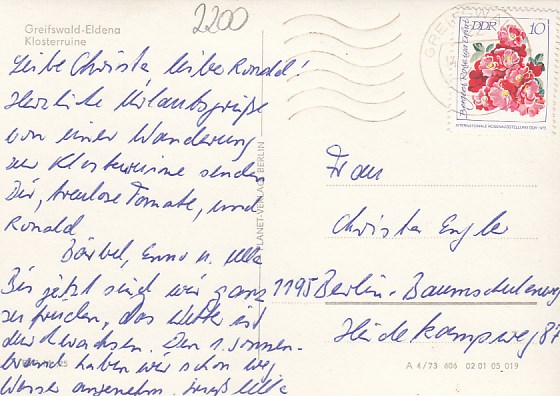 2200
Greifswald-Eldena
Klosterruine
Liebe Christa, lieber Ronald!
Herzliche Urlaubsgrüße
von einer Wanderung
zur Klosterruine senden
Dir, treulose Tomate, und
Ronald
Bärbel, Enno u. Ulla
Bis jetzt sind wir ganz
zufrieden, das Wetter ist
durchwachsen. Den 1. Sonnen-
brand haben wir schon weg
Wasser angenehm. Gruß Ulla
PLANET-VERLAG BERLIN
DDR 10
INTERNATIONALE ROSENAUSSTELLUNG DDR 1972
Frau
Christa Engler
1195 Berlin-Baumschulenweg
Heidekampweg 87
A 4/73 606 02 01 05 019